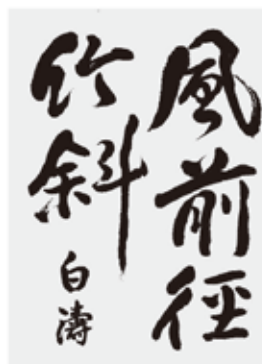 風前徑
竹斜
白濤